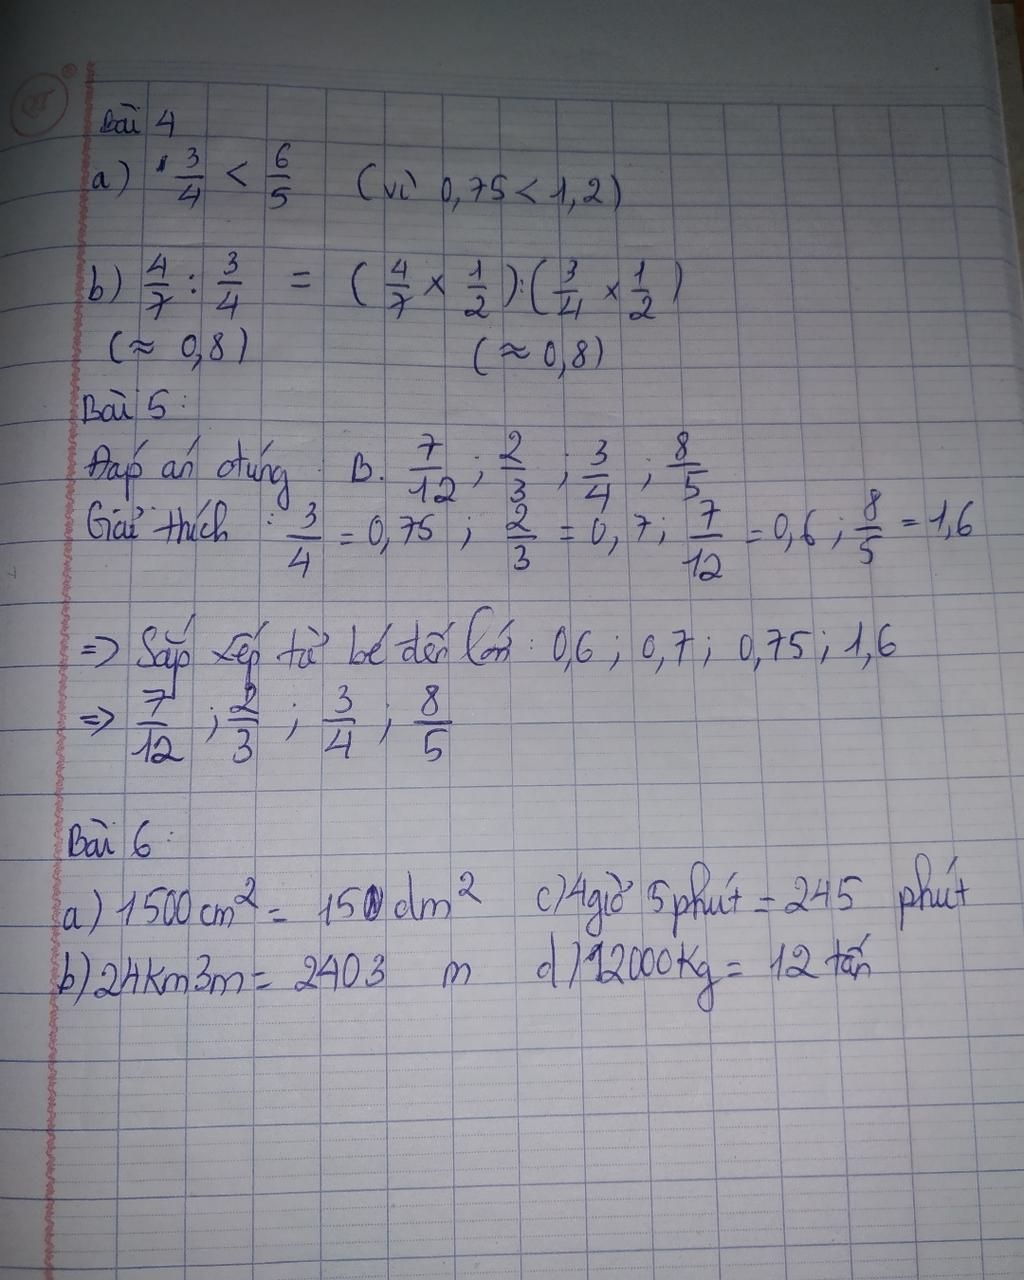 Bài 4
a) 3/4 < 6/5 (vì 0,75 < 1,2)
b) 4/7 : 3/4 = (4/7 × 1/2) : (3/4 × 1/2)
(≈ 0,8) (≈ 0,8)
Bài 5:
Đáp án đúng : B. 7/12 ; 2/3 ; 3/4 ; 8/5
Giải thích : 3/4 = 0,75 ; 2/3 = 0,7 ; 7/12 = 0,6 ; 8/5 = 1,6
=> Sắp xếp từ bé đến lớn : 0,6 ; 0,7 ; 0,75 ; 1,6
=> 7/12 ; 2/3 ; 3/4 ; 8/5
Bài 6:
a) 1500 cm² = 150 dm² c) 4giờ 5phút = 245 phút
b) 24km3m = 2403 m d) 12000Kg = 12 tấn